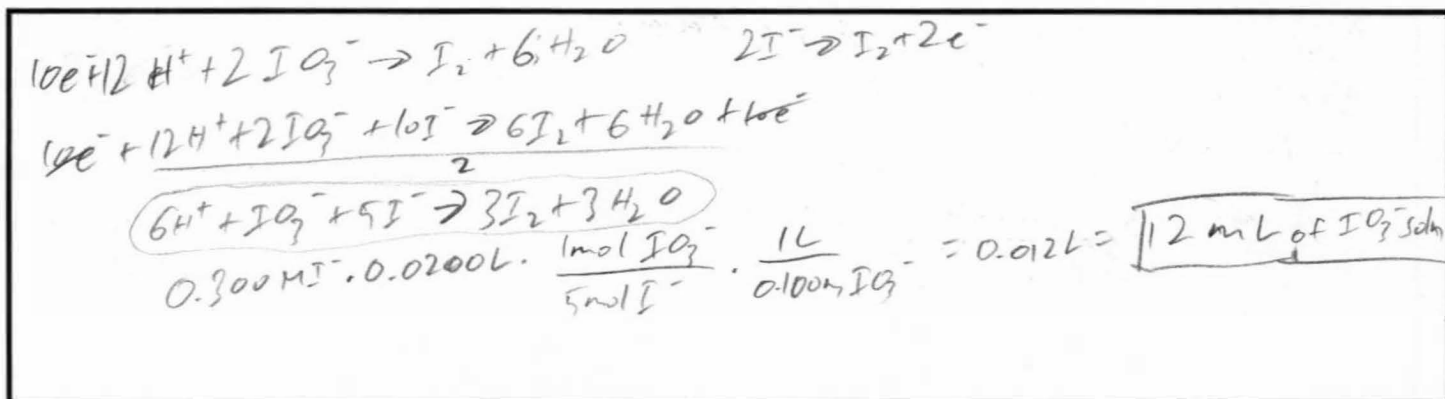 10e⁻+12 H⁺ + 2 IO₃⁻ → I₂ + 6 H₂O 2I⁻ → I₂ + 2e⁻
10e⁻ + 12H⁺ + 2IO₃⁻ + 10I⁻ → 6I₂ + 6H₂O + 10e⁻
2
6H⁺ + IO₃⁻ + 5I⁻ → 3I₂ + 3H₂O
0.300MI⁻ · 0.0200L · 1mol IO₃⁻ / 5mol I⁻ · 1L / 0.100m IO₃⁻ = 0.012L = 12 mL of IO₃⁻ soln